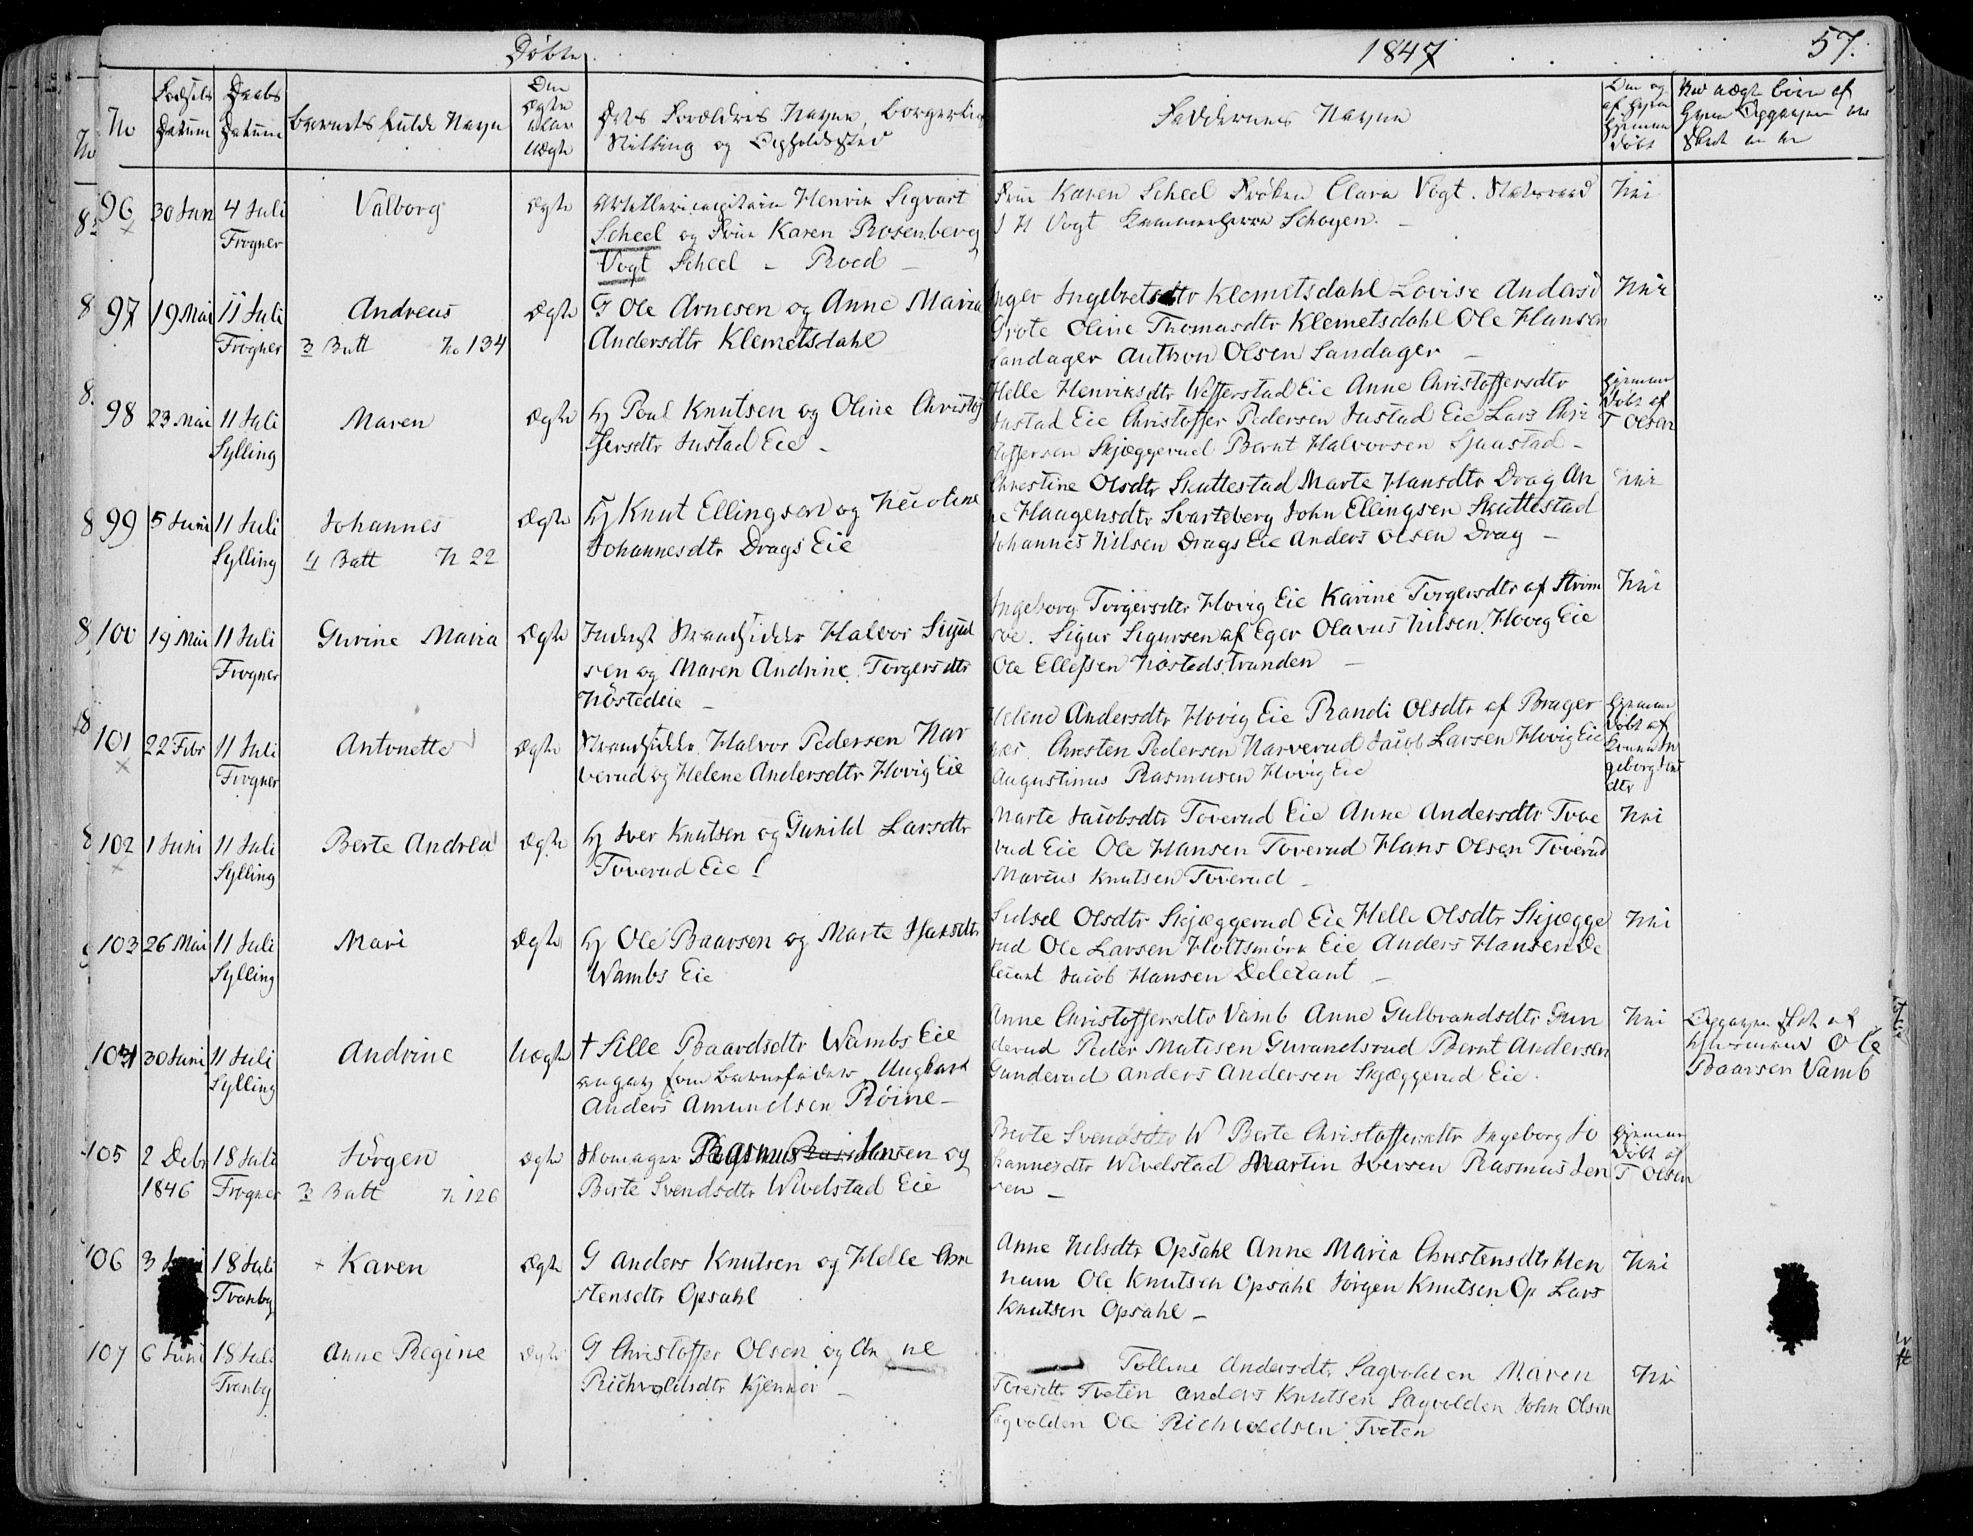 Døbte.
1847
57.
No
Fødsels Datum
Daabs Datum
Barnets fulde Navn
Om ægte eller uægte
Dets Forældres Navne, borgerlig Stilling og Opholdssted
Faddernes Navne
96 30 Juni 4 Juli Frogner
Valborg
ægte
Artillericapitain Henrik Sigvart
Scheel og Frue Karen Rosenberg
Vogt Scheel – Roed –
Frue Karen Scheel Frøken Clara Vogt. Statsraad
J H Vogt Kammerherre Schøyen. –
Nei
97 19 Mai 11 Juli Frogner
Andreas
3 Batt No 134
ægte
G Ole Arnesen og Anne Maria
Andersdtr Klemetsdahl
Inger Ingebretsdtr Klemetsdahl Lovise Andersd
Grote Oline Thomasdtr Klemetsdahl Ole Hansen
Sandager Anthon Olsen Sandager –
Nei
98 23 Mai 11 Juli Sylling
Maren
ægte
Hj Poul Knutsen og Oline Christof
fersdtr Justad Eie –
Helle Henriksdtr Wefferstad Eie Anne Christoffersdtr
Justad Eie Christoffer Pedersen Justad Eie Lars Chri
stoffersen Skjæggerud Bernt Halvorsen Sjaastad –
Hjemme
døbt af
T Olsen
99 5 Juni 11 Juli Sylling
Johannes
4 Batt N 22
ægte
Hj Knut Ellingsen og Nicoline
Johannesdtr Drags Eie
Christine Olsdtr Skuttestad Marte Hansdtr Drag An
ne Haagensdtr Svarteberg John Ellingsen Skuttestad
Johannes Nilsen Drags Eie Anders Olsen Drag –
Nei
100 19 Mai 11 Juli Frogner
Gurine Maria
ægte
Inderst Strandsidder Halvor Sigud
sen og Maren Andrine Torgersdtr
Nøstedeie –
Ingeborg Torgersdtr Hovig Eie Karine Torgersdtr af Strøm
søe. Sigur Sigursen af Eger Olavus Nilsen Hovig Eie
Ole Ellefsen Nøstedstranden –
Nei
101 22 Febr 11 Juli Frogner
Antonette
ægte
Strandsidder Halvor Pedersen Nar
verud og Helene Andersdtr Hovig Eie
Helene Andersdtr Hovig Eie Randi Olsdtr af Brager
næs. Christen Pedersen Narverud Jacob Larsen Hovig Eie
Augustinus Rasmusen Hovig Eie
Hjemme
døbt af
Kone In
geborg
dtr
102 1 Juni 11 Juli Sylling
Berte Andrea
ægte
Hj Iver Knutsen og Gunild Larsdtr
Toverud Eie
Marte Jacobsdtr Toverud Eie Anne Andersdtr Tove
rud Eie Ole Hansen Toverud Hans Olsen Toverud
Marcus Knutsen Toverud –
Nei
103 26 Mai 11 Juli Sylling
Mari
ægte
Hj Ole Baarsen og Marte Hansdtr
Wambs Eie
Sidsel Olsdtr Skjæggerud Eie Helle Olsdtr Skjægge
rud Ole Larsen Holtsmark Eie Anders Hansen De
leiant Jacob Hansen Deleiant –
Nei
104 30 Juni 11 Juli Sylling
Andrine
Uægte
† Sille Baardsdtr Wambs Eie
angav som Barnefader Ungkarl
Anders Amundsen Røine –
Anne Christoffersdtr Vamb Anne Gulbrandsdtr Gun
derud Peder Matisen Gurandsrud Bernt Andersen
Gunderud Anders Andersen Skjæggerud Eie.
Nei
Opgaven skeet af
Huusmand Ole
Baarsen Vamb
105 2 Debr 1846 18 Juli Frogner
Jørgen
3 Batt N 126
ægte
Skomager Rasmus Jensen og
Berte Svendsdtr Wivelstad Eie
Berte Svendsdtr W Berte Christoffersdtr Ingeborg Jo
hannesdtr Wivelstad Martin Iversen Rasmus Jen
sen –
Hjemme
døbt af
T Olsen
106 3 18 Juli Tranby
Karen
ægte
G Anders Knutsen og Helle Chri
stensdtr Opsahl
Anne Nelsdtr Opsahl Anne Maria Christensdtr Hen
num Ole Knutsen Opsahl Jørgen Knutsen Op Lars
Knutsen Opsahl –
Nei
107 6 Juni 18 Juli Tranby
Anne Regine
ægte
G Christoffer Olsen og An ne
Richvoldsdtr Kjenner –
Tolline Andersdtr Sagvolden Maren
Toresdtr Tveten Anders Knutsen Sagvolden John Olsen
Sagvolden Ole Richvoldsen Tveten
Nei